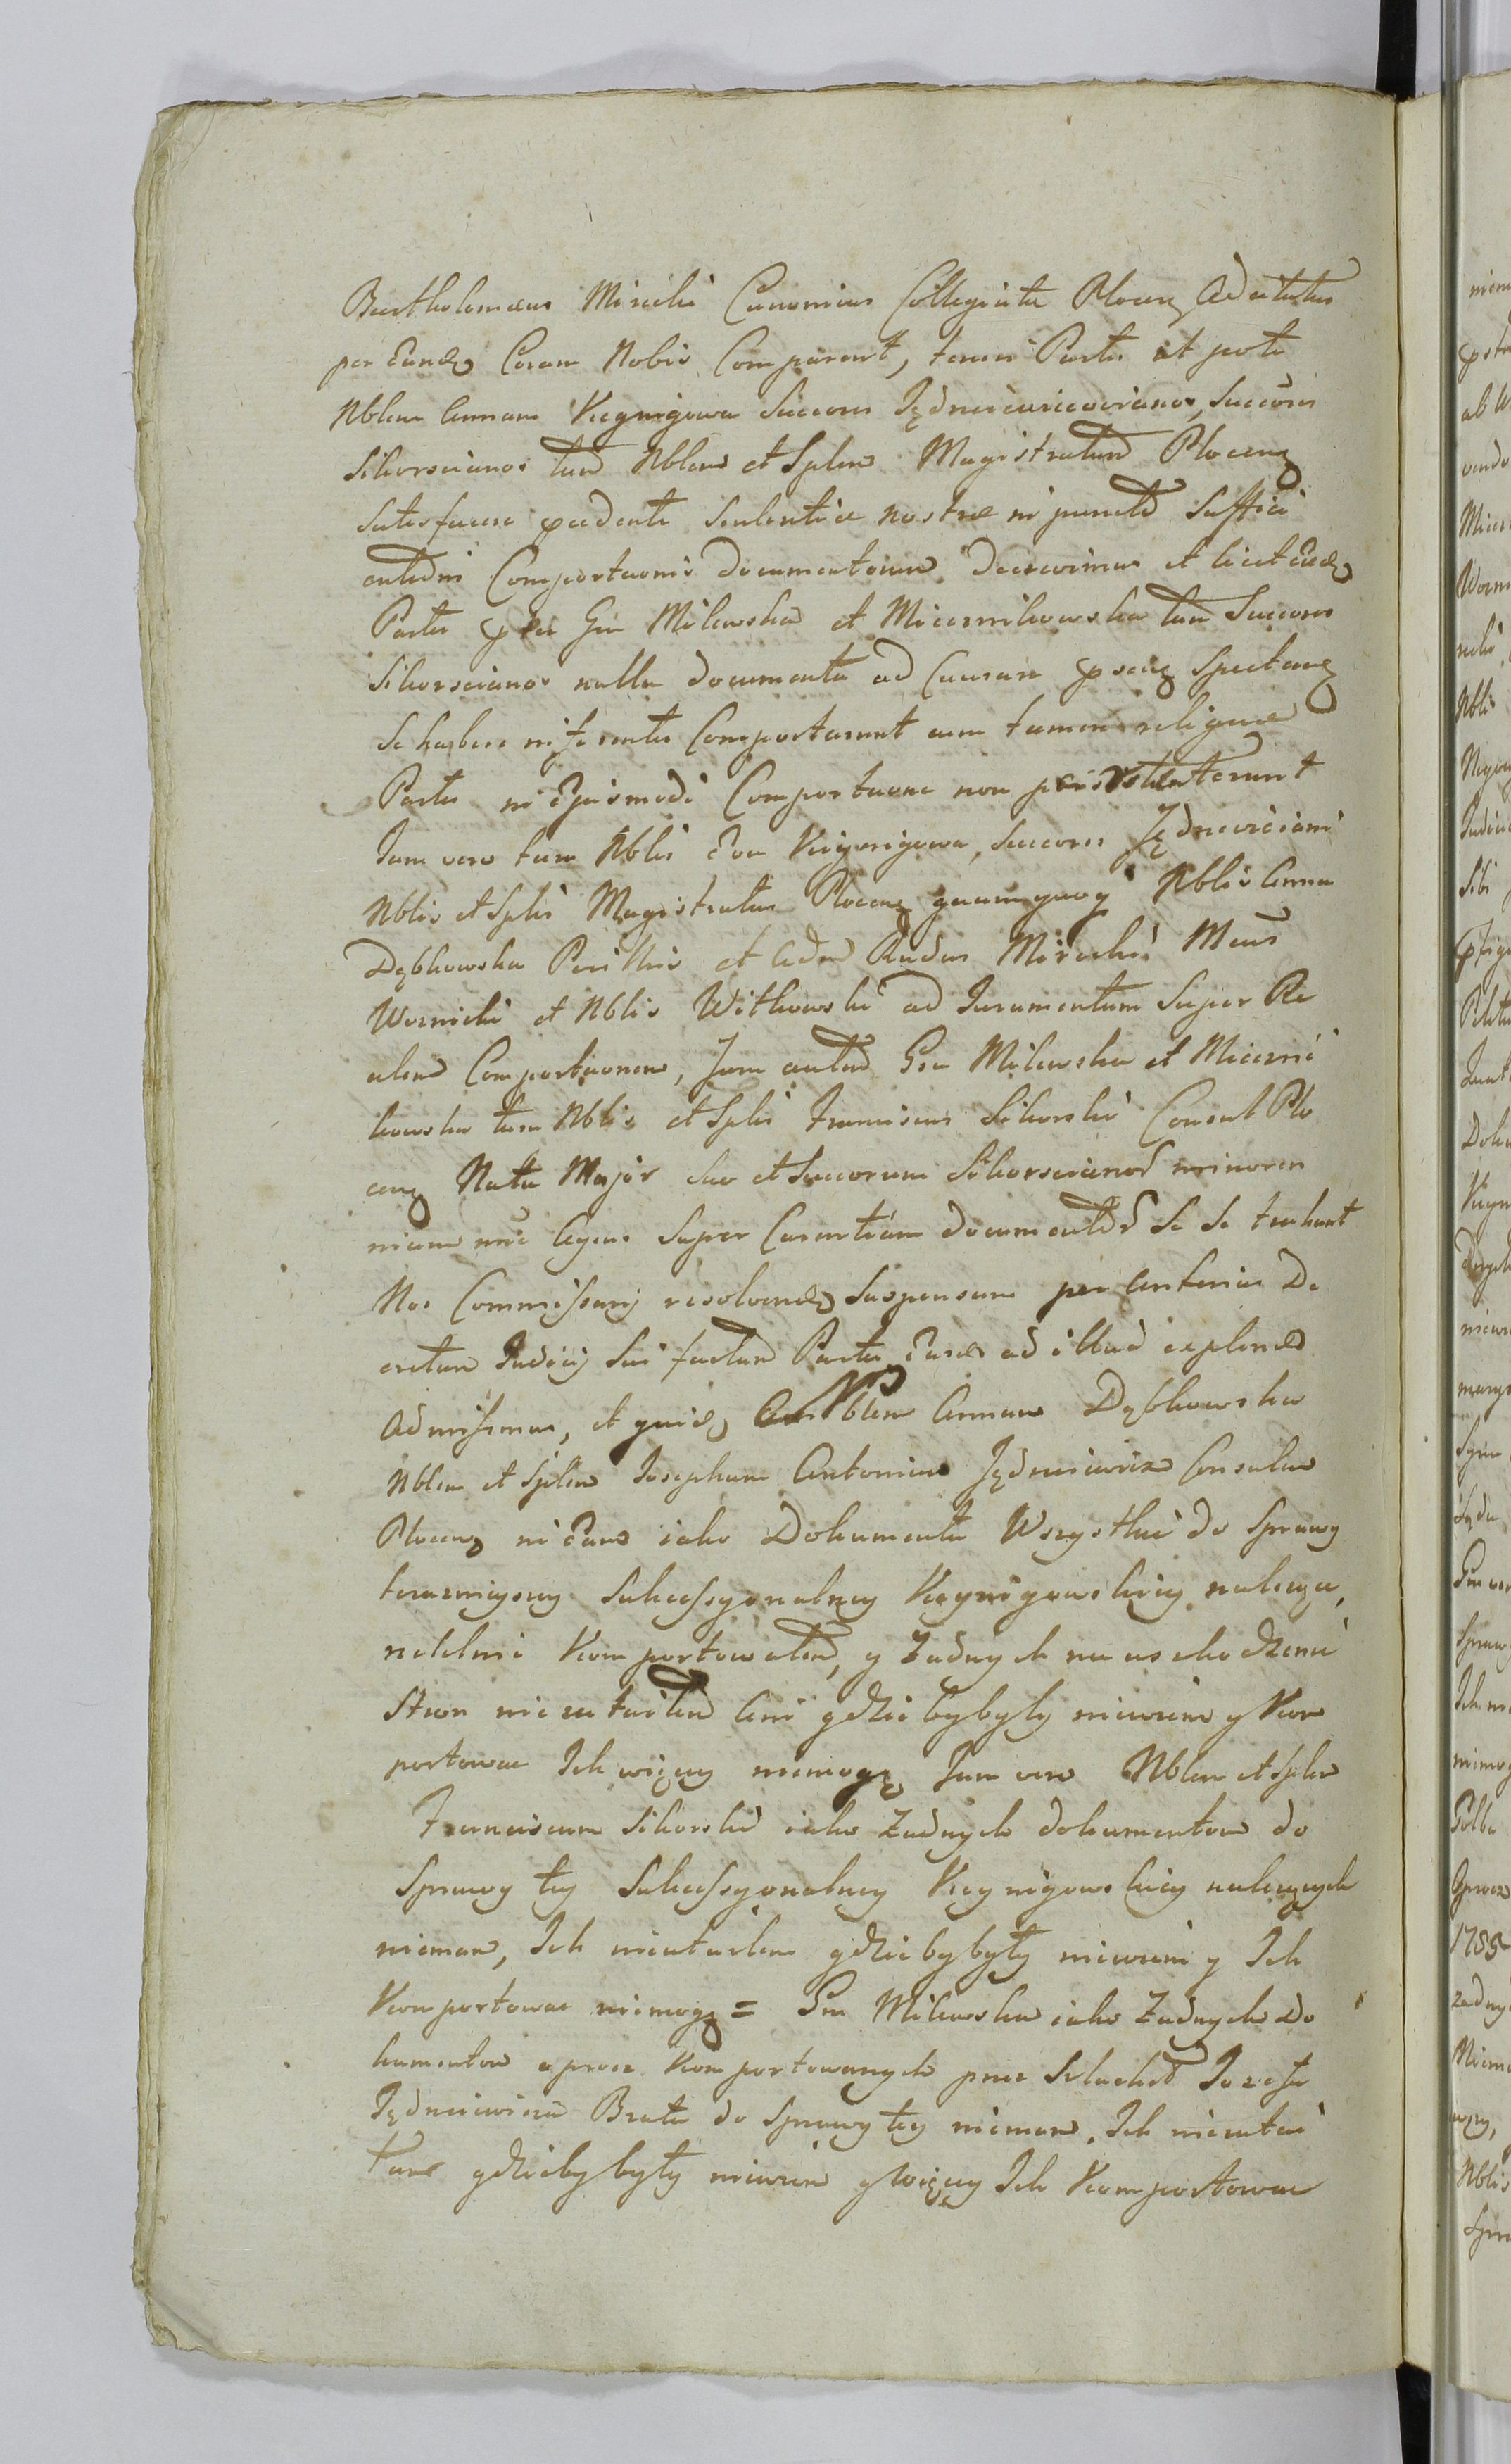 Bartholomæus Mirecki Canonicus Collegiatæ Plocen Adcitatus
per Eund Coram Nobis Comparent, tenen Partes ut pote
Nblem Annam Keynigowa Succores Jędrzeiewiczovianos, Succōres
Sikorscianos tum Nblem et Splem Magistratum Plocen
Satisfacere pcedenti Sententiæ Nostræ in puncto Suffici
entis Comportaonis Documentorum Decrevimus et licet Eæd
Partes pter Gsa Milewska et Miecznikowska tum Succores
Sikorscianos nulla documenta ad Causam pnsem Spectan
Se habere inferentes Comportarunt cum tamen reliquæ
Partes in Ejusmodi Comportaone non perstiterunt
Jam vero tum Nblis Eva Keynigowa, Succores Jędrzeiciani
Nblis et Splis Magistratus Plocen quamquoq Nblis Anna
Dębkowska Perillris et Adm Rndus Mirecki Mcus
Wernicki et Nblis Witkowski ad Juramentum Super Re
alem Comportaonem, Jam autem Gsa Milewska et Mieczni
kowska tum Nblis et Splis Franciscus Sikorski Consul Plo
cen Natu Major suo et Succorum Sikorscianor minoren
nium nne Agens Super Carentiam documentor Se Se trahunt
Nos Commissarij resolvend Suspensum per Anterius De
cretum Judicij Sui factum Partes Easd ad illud explend
Admisimus, et quid Nblem Annam Dębkowska
Nblem et Splem Josephum Antonium Jędrzeiewicz Consulem
Plocen in Eam iako Dokumenta Wszystkie do Sprawy
teraznieyszey Sukcessyonalney Keynigowskiey nalezące,
rzetelnie Komportowałem, y Żadnych na uszkodzenie
Stron nie zutaiłem Ani gdzieby były niewiem y Kom
portowac Ich więcey niemogę Jam vero Nblem et Splem
Franciscum Sikorski iako Żadnych dokumentow do
Sprawy tey Sukcessyonalney Keynigowskiey nalezących
niemam, Ich nieutaiłem gdzieby były niewiem y Ich
Komportowac niemogę = Gsa Milewska iako Żadnych Do
kumentow oprocz Komportowanych przez Szlachet Jozefa
Jędrzeiewicza Brata do Sprawy tey niemam, Ich nieutai
łam gdzieby były niewiem y więcey Ich Komportowac